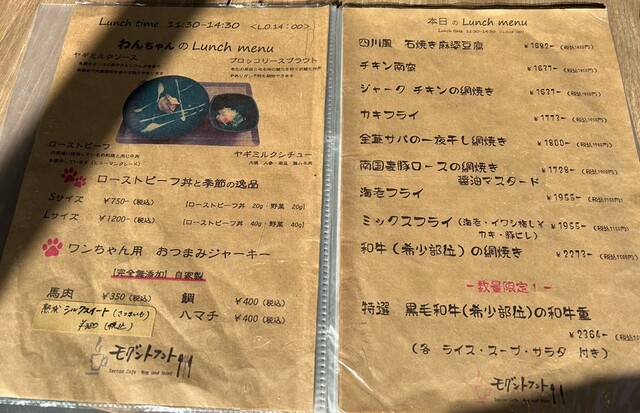 Lunch time 11:30-14:30 <L.O.14:00>
わんちゃんのLunch menu
ヤギミルクソース
ブロッコリースプラウト
ローストビーフ
ヤギミルクシチュー
ローストビーフ丼と季節の逸品
Sサイズ ¥750-(税込) [ローストビーフ丼 20g・野菜 20g]
Lサイズ ¥1200-(税込) [ローストビーフ丼 40g・野菜 40g]
ワンちゃん用 おつまみジャーキー
[完全無添加] 自家製
馬肉 ¥350(税込) 鯛 ¥400(税込)
ハマチ ¥400(税込)
シルクスイート(さつまいも)
(税込)
モグントフント
Terrace Cafe Mog und Hund
本日のLunch menu
Lunch time 11:30-14:30 (L.O.14:00)
四川風 石焼き麻婆豆腐 ¥1682-
チキン南蛮 ¥1637-
ジャーク チキンの網焼き ¥1637-
カキフライ ¥1773-
金華サバの一夜干し網焼き ¥1800-
南国美豚ロースの網焼き ¥1728-
醤油マスタード
海老フライ ¥1955-
ミックスフライ(海老・イワシ梅しそ ¥1955-
カキ・豚ヒレ)
和牛(希少部位)の網焼き ¥2273-
-数量限定!-
特選 黒毛和牛(希少部位)の和牛重
¥2364-
(各 ライス・スープ・サラダ 付き)
モグントフント
Terrace Cafe Mog und Hund